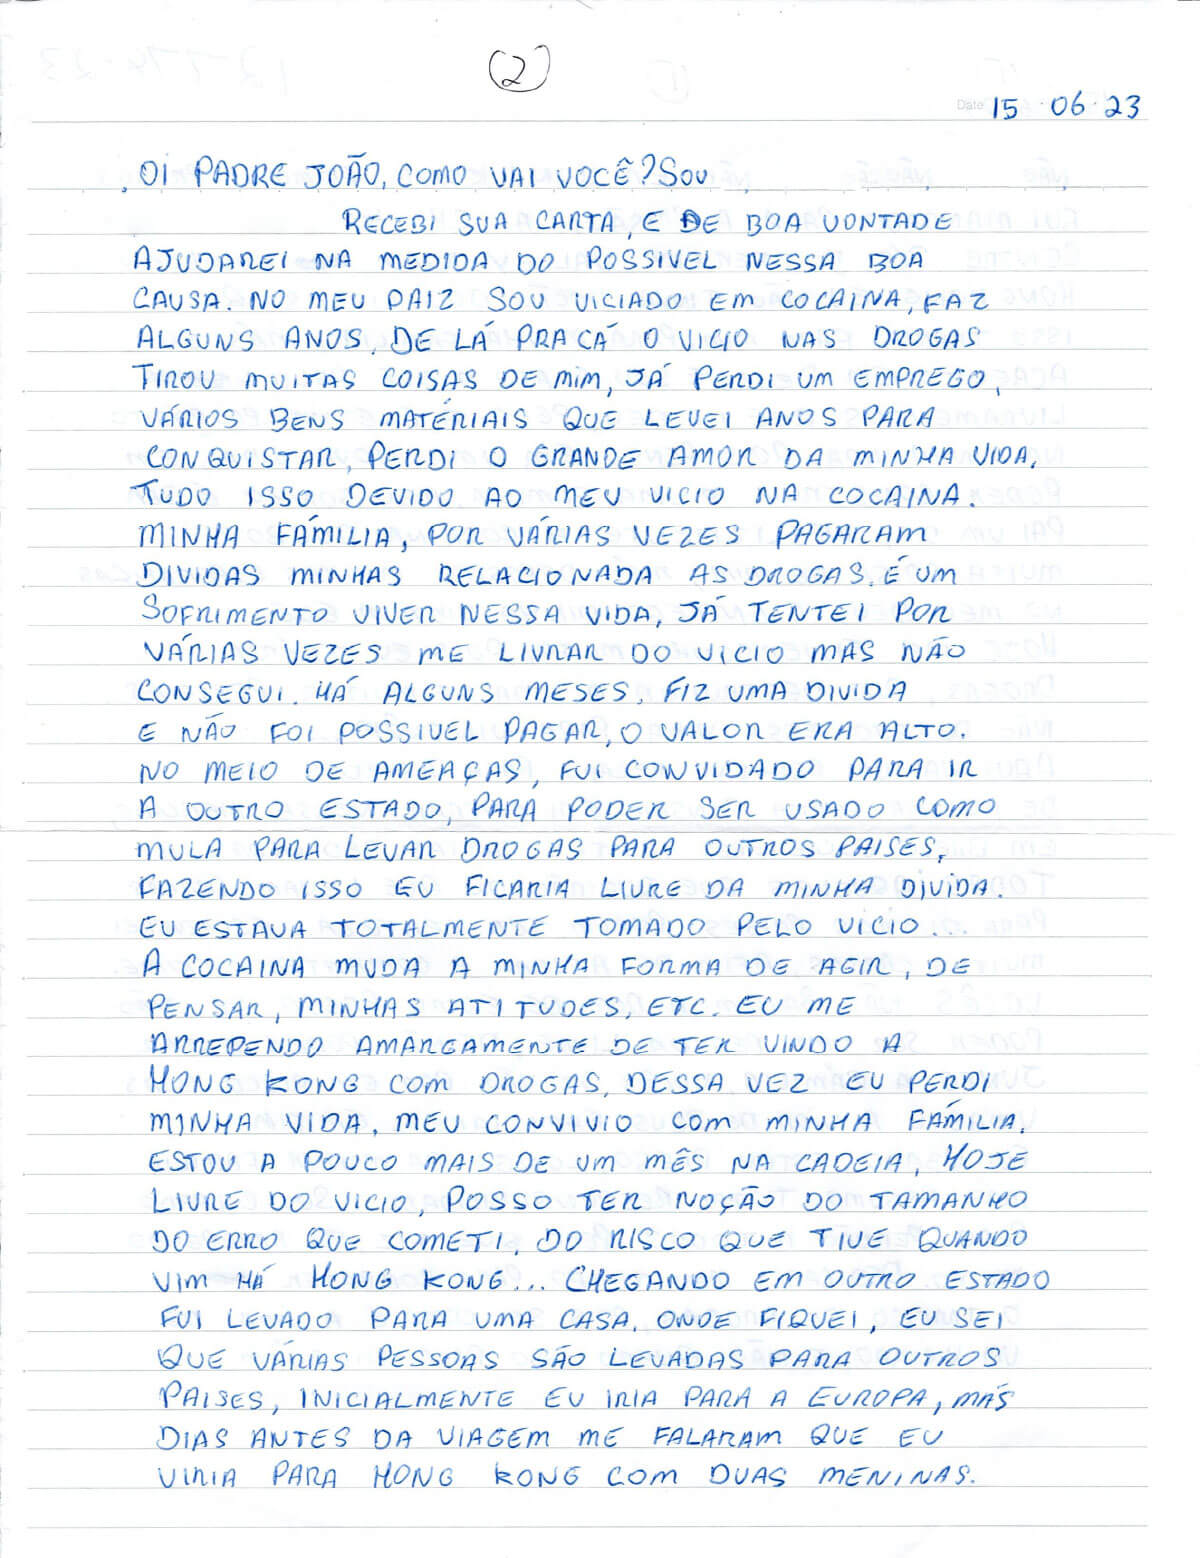 (2)
Date 15 · 06 · 23
OI PADRE JOÃO, COMO VAI VOCÊ? SOU
RECEBI SUA CARTA, E DE BOA VONTADE
AJUDAREI NA MEDIDA DO POSSIVEL NESSA BOA
CAUSA. NO MEU PAIZ SOU VICIADO EM COCAINA, FAZ
ALGUNS ANOS, DE LÁ PRA CÁ O VICIO NAS DROGAS
TIROU MUITAS COISAS DE MIM, JÁ PERDI UM EMPREGO,
VÁRIOS BENS MATÉRIAIS QUE LEVEI ANOS PARA
CONQUISTAR, PERDI O GRANDE AMOR DA MINHA VIDA,
TUDO ISSO DEVIDO AO MEU VICIO NA COCAINA.
MINHA FAMÍLIA, POR VÁRIAS VEZES PAGARAM
DIVIDAS MINHAS RELACIONADA AS DROGAS. É UM
SOFRIMENTO VIVER NESSA VIDA, JÁ TENTEI POR
VÁRIAS VEZES ME LIVRAR DO VICIO MAS NÃO
CONSEGUI. HÁ ALGUNS MESES, FIZ UMA DIVIDA
E NÃO FOI POSSIVEL PAGAR, O VALOR ERA ALTO.
NO MEIO DE AMEAÇAS, FUI CONVIDADO PARA IR
A OUTRO ESTADO, PARA PODER SER USADO COMO
MULA PARA LEVAR DROGAS PARA OUTROS PAISES,
FAZENDO ISSO EU FICARIA LIVRE DA MINHA DIVIDA.
EU ESTAVA TOTALMENTE TOMADO PELO VICIO...
A COCAINA MUDA A MINHA FORMA DE AGIR, DE
PENSAR, MINHAS ATITUDES, ETC. EU ME
ARREPENDO AMARGAMENTE DE TER VINDO A
HONG KONG COM DROGAS, DESSA VEZ EU PERDI
MINHA VIDA, MEU CONVIVIO COM MINHA FAMÍLIA.
ESTOU A POUCO MAIS DE UM MÊS NA CADEIA, HOJE
LIVRE DO VICIO, POSSO TER NOÇÃO DO TAMANHO
DO ERRO QUE COMETI, DO RISCO QUE TIVE QUANDO
VIM HÁ HONG KONG... CHEGANDO EM OUTRO ESTADO
FUI LEVADO PARA UMA CASA, ONDE FIQUEI, EU SEI
QUE VÁRIAS PESSOAS SÃO LEVADAS PARA OUTROS
PAISES, INICIALMENTE EU IRIA PARA A EUROPA, MÁS
DIAS ANTES DA VIAGEM ME FALARAM QUE EU
VIRIA PARA HONG KONG COM DUAS MENINAS.